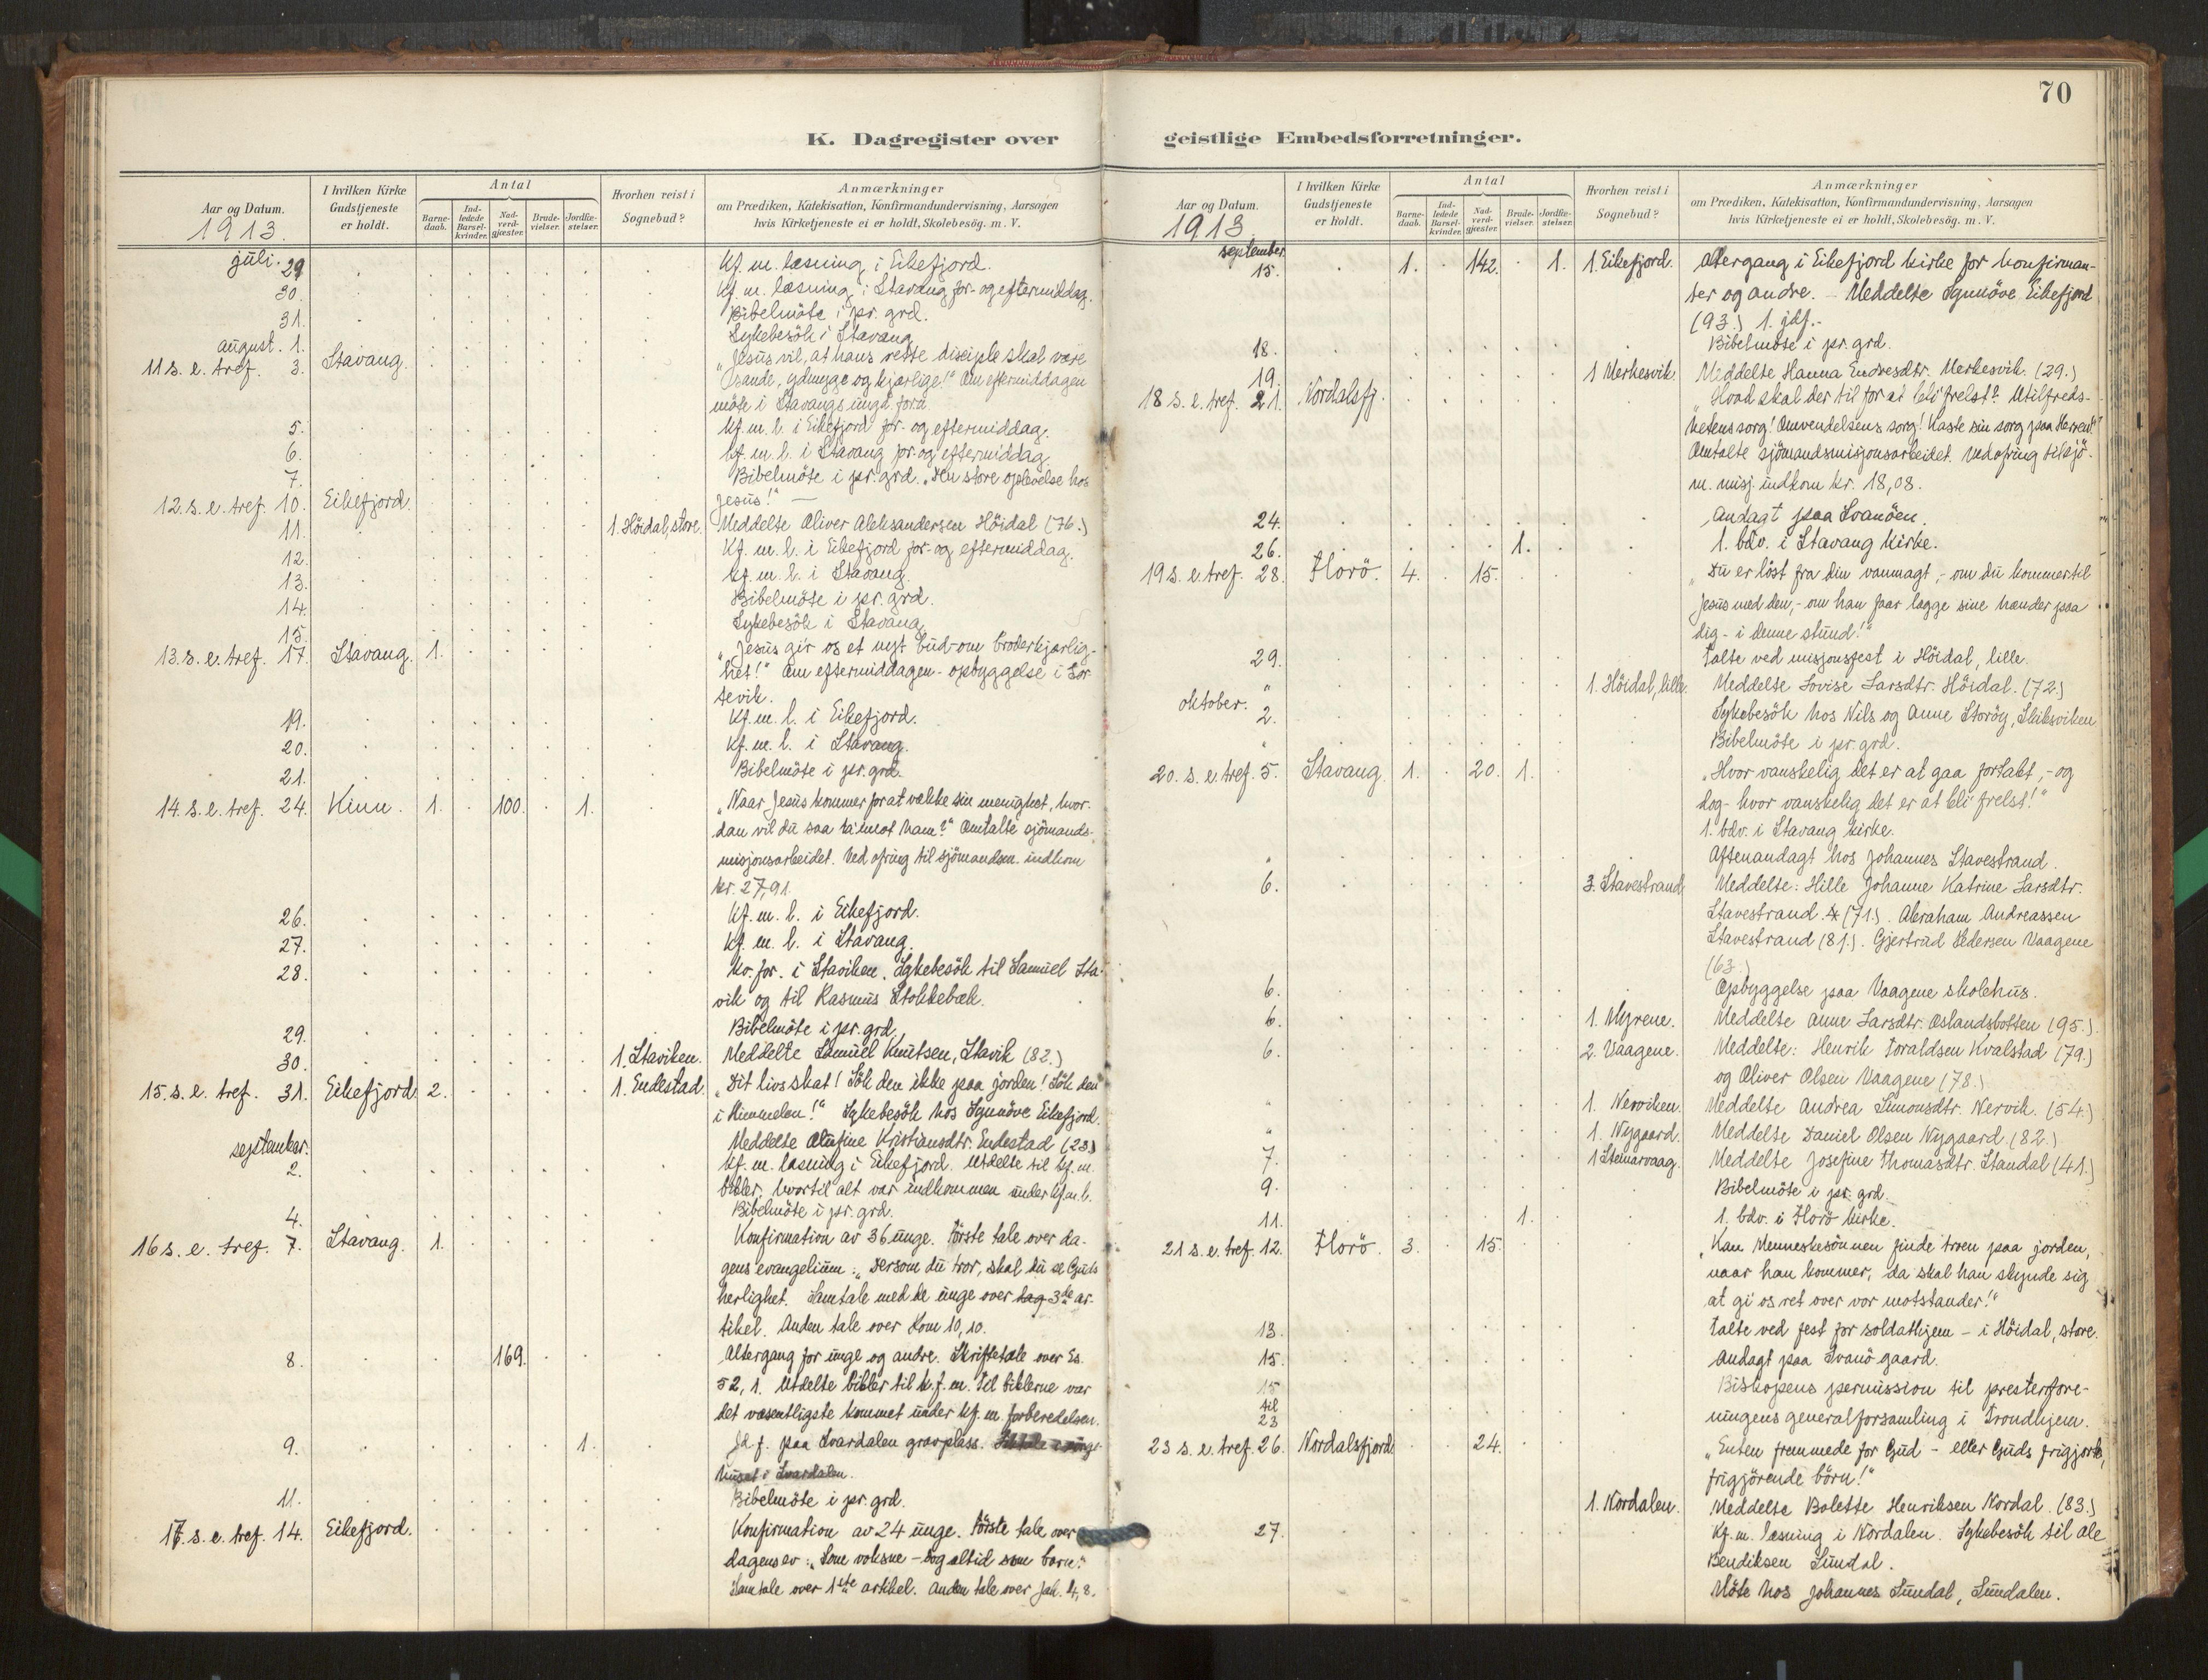 70
K. Dagregister over
geistlige Embedsforretninger.
Aar og Datum.
1913.
I hvilken Kirke Gudstjeneste er holdt.
Antal
Barnedaab.
Indledede Barselkvinder.
Nadverdgjæster.
Brudevielser.
Jordfæstelser.
Hvorhen reist i Sognebud?
Anmærkninger
om Prædiken, Katekisation, Konfirmandundervisning, Aarsagen
hvis Kirketjeneste ei er holdt, Skolebesög. m. V.
juli. 29 Kf. m. læsning i Eikefjord.
30. Kf. m. læsning i Stavang for- og eftermiddag.
31. Bibelmöte i pr. grd.
august. 1. Sykebesök i Stavang
11 s. e. tref. 3. Stavang. „Jesus vil, at hans rette disciple skal være
sande, ydmyge og kjærlige!" Om eftermiddagen
möte i Stavangs ungd. foren
5. Kf. m. l. i Eikefjord for- og eftermiddag.
6. Kf. m. l. i Stavang for- og eftermiddag
7. Bibelmöte i pr. grd.
12. s. e. tref. 10. Eikefjord. „Den store oplevelse hos
Jesus!" —
11. 1. Höidal, store. Meddelte Oliver Aleksandersen Höidal (76.)
12. Kf. m. l. i Eikefjord for- og eftermiddag.
13. Kf. m. l. i Stavang.
14. Bibelmöte i pr. grd.
15. Sykebesök i Stavang
13. s. e. tref. 17. Stavang. 1. „Jesus gir os et nyt bud - om broderkjærlig-
het!" Om eftermiddagen - opbyggelse i Tor-
tevik.
19. Kf. m. l. i Eikefjord.
20. Kf. m. l. i Stavang.
21. Bibelmöte i pr. grd.
14. s. e. tref. 24. Kinn. 1. 100. 1. „Naar Jesus kommer for at vække sin menighet, hvor-
dan vil du saa ta imot ham?" Omtalte sjömands-
misjonsarbeidet. Ved ofring til sjömandsm. indkom
kr. 27,91.
26. Kf. m. l. i Eikefjord.
27. Kf. m. l. i Stavang.
28. Ko. for. i Staviken. Sykebesök til Samuel Sta-
vik og til Rasmus Stokkebæk.
29. Bibelmöte i pr. grd.
30. 1. Staviken. Meddelte Samuel Knutsen, Stavik (82.)
15. s. e. tref. 31. Eikefjord. 2. 1. Endestad. „Dit livs skat! Sök den ikke paa jorden! Sök den
i Himmelen!" Sykebesök hos Synnöve Eikefjord.
Meddelte Olufine Kristiansdtr. Endestad (23.)
september. 2. Kf. m. læsning i Eikefjord. Utdelte til kf. m.
bibler, hvortil alt var indkommen under kf. m. l.
4. Bibelmöte i pr. grd.
16 s. e. tref. 7. Stavang. 1. Konfirmation av 36 unge. Förste tale over da-
gens evangelium: „Dersom du tror, skal du se Guds
herlighet. Samtale med de unge over 3de ar-
tikel. Anden tale over Rom 10,10.
8. 169. Altergang for unge og andre. Skriftetale over Es.
52, 1. Utdelte bibler til k. f. m. Til biblerne var
det væsentligste kommet under kf. m. forberedelsen.
9. 1. Jd f. paa Svardalen gravplass.
11. Bibelmöte i pr. grd.
17. s. e. tref. 14. Eikefjord. Konfirmation av 24 unge. Förste tale over
dagens ev: „Som voksne - dog altid som barn."
Samtale over 1ste artikkel. Anden tale over Jak. 4, 8.
Aar og Datum.
1913
I hvilken Kirke Gudstjeneste er holdt.
Antal
Barnedaab.
Indledede Barselkvinder.
Nadverdgjæster.
Brudevielser.
Jordfæstelser.
Hvorhen reist i Sognebud?
Anmærkninger
om Prædiken, Katekisation, Konfirmandundervisning, Aarsagen
hvis Kirketjeneste ei er holdt, Skolebesög. m. V.
september. 15. 1. 142. 1. 1. Eikefjord. Altergang i Eikefjord kirke for konfirman-
ter og andre. - Meddelte Synnöve Eikefjord
(93.) 1. jdf. -
18. Bibelmöte i pr. grd.
19. 1 Merkesvik. Meddelte Hanna Endresdtr. Merkesvik. (29.)
18 s. e. tref. 21. Nordalsfj. „Hvad skal der til for at bli frelst? Utilfreds-
hetens sorg! Omvendelsens sorg! Kaste sin sorg paa Herren!"
Omtalte sjömandsmisjonsarbeidet. Ved ofring til sjö-
m. misj. indkom kr. 18,08.
24. Andagt paa Svanöen.
26. 1. 1. bdv. i Stavang kirke.
19 s. e. tref. 28. Florö. 4. 15. „Du er löst fra din vanmagt, - om du kommer til
Jesus med den, - om han faar lægge sine hænder paa
dig - i denne stund!"
29. Talte ved misjonsfest i Höidal, lille.
" 1. Höidal, lille. Meddelte Lovise Larsdtr. Höidal. (72.)
oktober. 2. Sykebesök hos Nils og Anne Storöy,
" Bibelmöte i pr. grd.
20. s. e. tref. 5. Stavang. 1. 20. 1. „Hvor vanskelig det er at gaa fortabt, - og
dog - hvor vanskelig det er at bli frelst!"
1. bdv. i Stavang kirke.
" Aftenandagt hos Johannes Stavestrand.
6. 3. Stavestrand Meddelte: Hille Johanne Katrine Larsdtr.
Stavestrand. (71.). Abraham Andreassen
Stavestrand (81.). Gjertrud Pedersen Vaagene
(63.)
6. Opbyggelse paa Vaagene skolehus.
6. 1. Myrene. Meddelte Anne Larsdtr. Oslandsbotten (95.).
6. 2. Vaagene. Meddelte: Henrik Toraldsen Kvalstad (79.)
og Oliver Olsen Vaagene (78.)
" 1. Nerviken. Meddelte Andrea Simonsdtr. Nervik. (54.)
" 1. Nygaard. Meddelte Daniel Olsen Nygaard. (82.)
7. 1 Steinarvaag. Meddelte Josefine Thomasdtr. Standal (41.)
9. Bibelmöte i pr. grd.
11. 1. 1. bdv. i Florö kirke.
21 s. e. tref. 12. Florö. 3. 15. „Kan Menneskesönnen finde troen paa jorden,
naar han kommer, da skal han skynde sig
at gi os ret over vor motstander!"
13. Talte ved fest for soldathjem - i Höidal, store.
15. Andagt paa Svanö gaard.
15 til 23 Biskopens permission til presteforre-
ningens generalforsamling i Trondhjem.
23 s. e. tref. 26. Nordalsfjord 24. „Enten fremmede for Gud - eller Guds frigjorte,
frigjörende börn!"
1. Nordalen. Meddelte Bolette Henriksen Nordal. (83.)
27. Kf. m. læsning i Nordalen. Sykebesök til Ole
Bendiksen Sundal.
Möte hos Johannes Sundal, Sundalen.